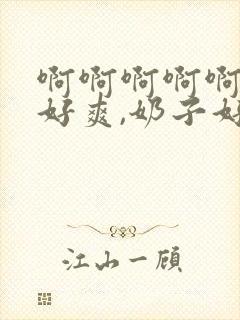 啊啊啊啊啊
好爽,奶子好
江山一顾